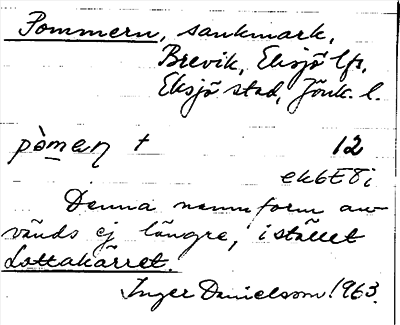 Pommern, sankmark,
Brevik, Eksjö lfs,
Eksjö stad, Jönk. l.
pò̱man † 12
ek6E8i
Denna namnform an-
vänds ej längre, istället
Lottakärret.
Inger Danielsson 1963.